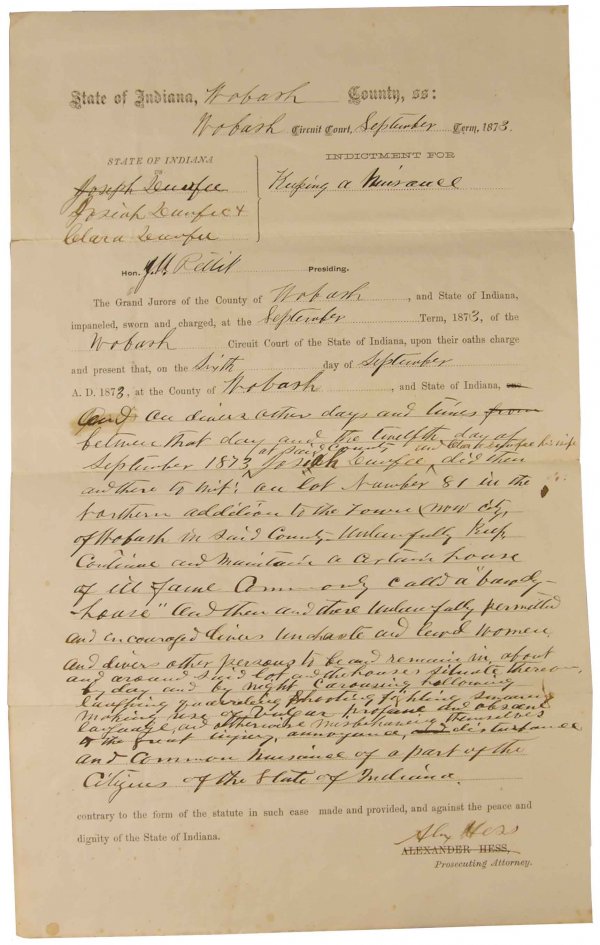 State of Indiana, Wobash County, ss:
Wobash Circuit Court, September Term, 1873.
STATE OF INDIANA
vs
Joseph Dunfee
Josiah Dunfee &
Clara Dunfee
INDICTMENT FOR
Keeping a Nuisance
Hon. J. U. Pettit Presiding.
The Grand Jurors of the County of Wobash, and State of Indiana,
impaneled, sworn and charged, at the September Term, 1873, of the
Wobash Circuit Court of the State of Indiana, upon their oaths charge
and present that, on the Sixth day of September
A. D. 1873, at the County of Wobash, and State of Indiana, one
and on divers other days and times from
between that day and the twelfth day of
September 1873 at said County Josiah Dunfee and Clara Dunfee his wife did then
and there to wit: on lot Number 81 in the
Northern addition to the Town (now city)
of Wobash in said County Unlawfully Keep
Continue and maintain a certain house
of ill fame Commonly called a "bawdy-
-house" And then and there Unlawfully permitted
and encouraged divers Unchaste and lewd women,
and divers other persons to be and remain in, about
and around said lot and the houses situate thereon
by day and by night, carousing, hollowing
laughing, shooting, fighting, swearing
making use of vulgar profane and obscene
language, and otherwise misbehaving themselves
to the great injury, annoyance, and disturbance
and Common Nuisance of a part of the
Citizens of the State of Indiana.
contrary to the form of the statute in such case made and provided, and against the peace and
dignity of the State of Indiana.
Alex Hess
ALEXANDER HESS,
Prosecuting Attorney.